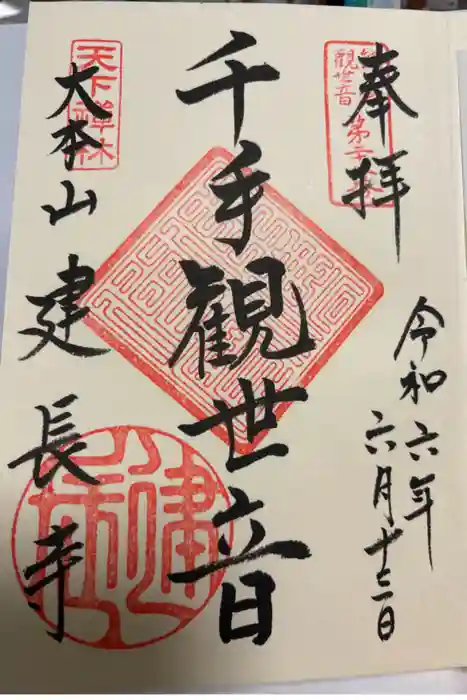 奉拝
令和六年
六月十三日
千手観世音
天下禅林
大本山 建長寺
建長
観世音